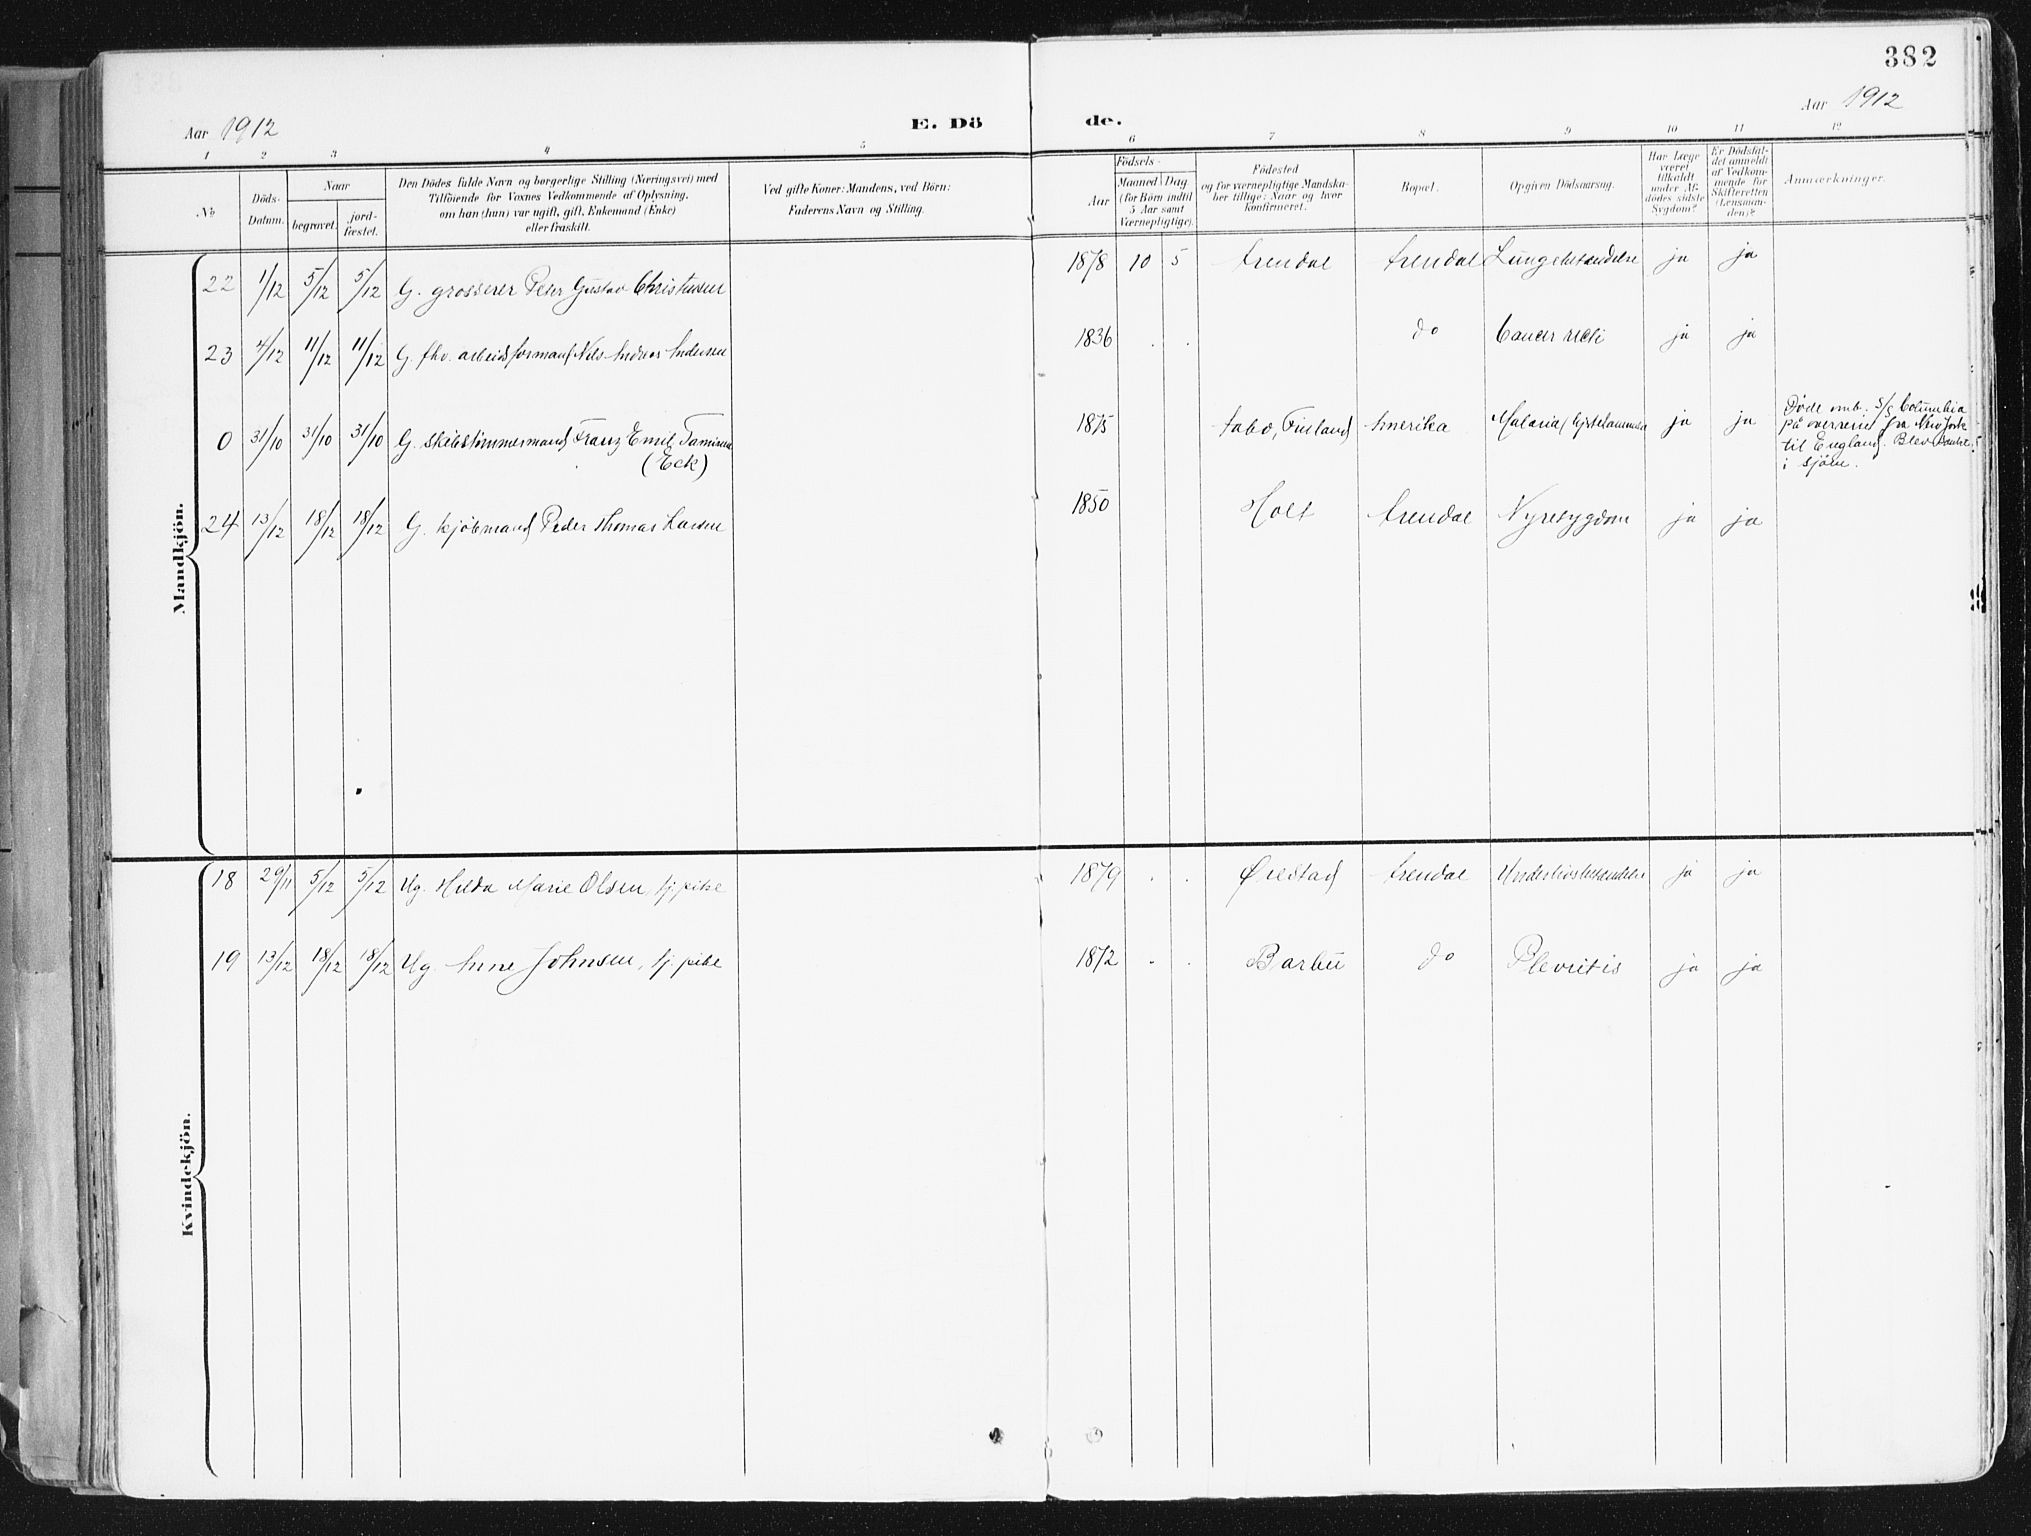 382
Aar 1912
E. Dö
de.
Aar 1912
1 2 3 4 5 6 7 8 9 10 11 12
No
Döds-
Datum.
Naar
begravet.
jord-
fæstet.
Den Dödes fulde Navn og borgerlige Stilling (Næringsvei) med
Tilföiende for Voxnes Vedkommende af Oplysning,
om han (hun) var ugift, gift, Enkemand (Enke)
eller fraskilt.
Ved gifte Koner: Mandens, ved Börn:
Faderens Navn og Stilling.
Födsels-
Aar
Maaned Dag
(for Börn indtil
5 Aar samt
Værnepligtige).
Födested
og for værnepligtige Mandska-
ber tillige: Naar og hvor
konfirmeret.
Bopæl.
Opgiven Dödsaarsag.
Har Læge
været
tilkaldt
under Af-
dödes sidste
Sygdom?
Er Dödsfal-
det anmeldt
af Vedkom-
mende for
Skifteretten
(Lensman-
den)?
Anmærkninger.
Mandkjön.
22 1/12 5/12 5/12 G. grosserer Peter Gustav Christensen 1878 10 5 Arendal Arendal Lungebetændelse ja ja
23 4/12 11/12 11/12 G. fhv. arbeidsformand Nils Andreas Andersen 1836 . . do Cancer recti ja ja
0 31/10 31/10 31/10 G. skibstømmermand Franz Emil
(Eck)
1875 Aabo, Finland Amerika Malaria ja ja
Døde omb. S/S Columbia
på overreise fra New York
til England. Blev
i sjøen.
24 13/12 18/12 18/12 G. kjøbmand Peder Thomas Larsen 1850 Holt Arendal Nyresygdom ja ja
Kvindekjön.
18 29/11 5/12 5/12 Ug. Hilda Marie Olsen, tj.pike 1879 . . Øiestad Arendal Underlivsbetændelse ja ja
19 13/12 18/12 18/12 Ug. Anne Johnsen, tj.pike 1872 . . Barbu do Plevritis ja ja